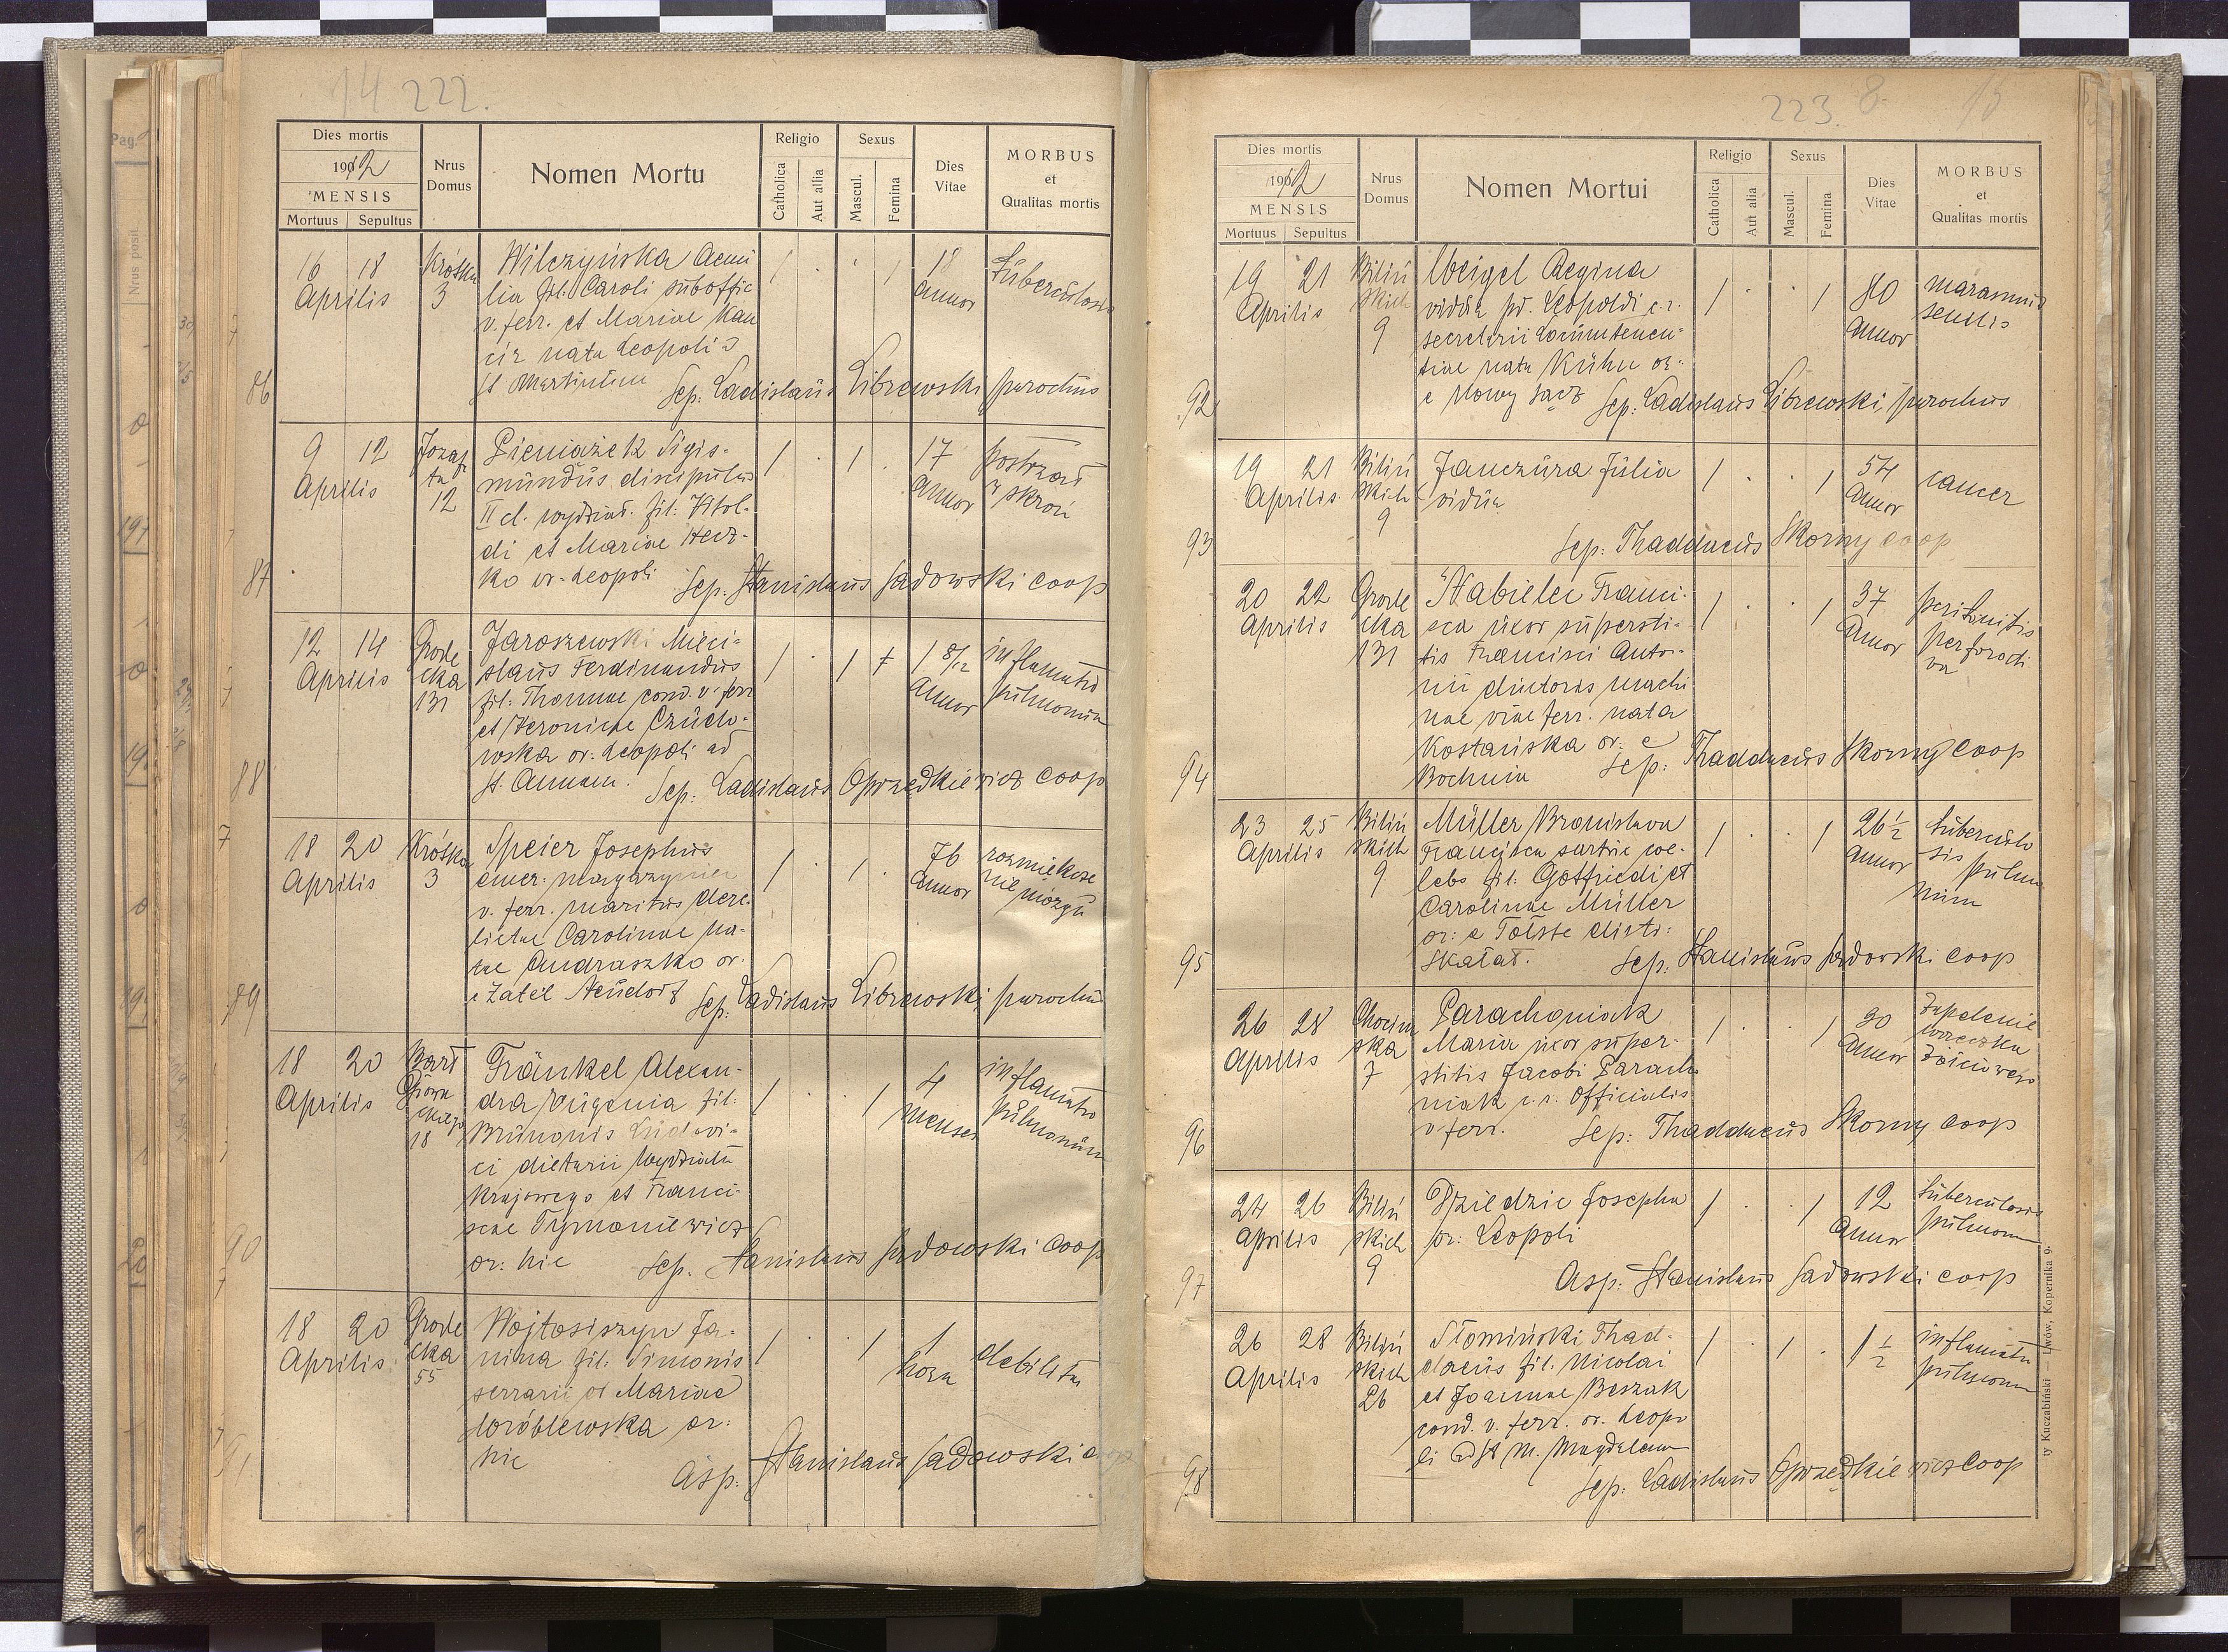 14 222.
Dies mortis
1912
MENSIS
Mortuus Sepultus
Nrus Domus
Nomen Mortu
Religio
Catholica
Aut allia
Sexus
Mascul.
Femina
Dies Vitae
MORBUS
et
Qualitas mortis
86
16 18
Aprilis
Krótka
3
Wilczyńska Aemi
lia fil. Caroli suboffic
v. ferr. et Mariae Kan
cir nata Leopoli
St Martinum
Sep. Ladislaus Librewski parochus
1 . . 1
18
annor
Tuberculosis
87
9 12
Aprilis
Jozaf
ta
12
Pieniażek Sigis-
mundus discipulus
II cl. wydział. fil. Vitol-
di et Mariae Hecz-
ko or. Leopoli
Sep. Stanislaus Sadowski coop
1 . 1 .
17
Annor
postrzał
w skroń
88
12 14
Aprilis
Grode
cka
131
Jaroszewski Mieci-
slaus Ferdinandus
fil. Thomae cond. v. ferr
et Veronicae Czudo-
wska or: Leopoli ad
St. Annam.
Sep: Ladislaus Oprzędkiewicz coop
1 . 1
1 8/12
Annor
inflamatio
pulmonum
89
18 20
Aprilis
Krótka
3
Speier Josephus
emer. magazynier
v. ferr. maritus dere-
lictae Carolinae na-
tae Andraszko or.
e Zatel Neudorf
Sep. Ladislaus Librewski parochus
1 . 1 .
76
Annor
rozmiękcze
nie mózgu
90
18 20
Aprilis
18
Fränkel Alexan-
dra Eugenia fil.
Brunonis Ludovi-
ci dietarii Wydziału
Krajowego et Franci-
scae Tymoniewicz
or: hic
Sep. Stanislaus Sadowski coop
1 . . 1
4
menses
inflamatio
pulmonum
91
18 20
Aprilis
Grode
cka
55
Wojtosiszyn Ja-
nina fil. Simonis
serrarii et Mariae
Wróblewska or:
hic
Asp. Stanislaus Sadowski coop
1 . . 1
1
hora
debilitas
223. 8. 15
Dies mortis
1912
MENSIS
Mortuus Sepultus
Nrus Domus
Nomen Mortui
Religio
Catholica
Aut alia
Sexus
Mascul.
Femina
Dies Vitae
MORBUS
et
Qualitas mortis
92
19 21
Aprilis
Biliń
skich
9
Weigel Regina
vidua p. Leopoldi c.r.
secretarii Locumtenen-
tiae nata Kühn or:
e Nowy Sącz
Sep: Ladislaus Librewski parochus
1 . . 1
80
Annor
marasmus
senilis
93
19 21
Aprilis
Biliń
skich
9
Janczura Julia
vidua
Sep: Thaddaeus Skorny coop
1 . . 1
54
Annor
cancer
94
20 22
Aprilis
Grode
cka
131
Habielec Franci-
sca uxor supersti-
tis Francisci Anto-
nii ductoris machi
nae viae ferr. nata
Kostańska or: e
Bochnia
Sep: Thaddaeus Skorny coop
1 . . 1
37
Annor
peritonitis
perforati
va
95
23 25
Aprilis
Biliń
skich
9
Müller Bronislava
Francisca sartrix coe-
lebs fil. Gotfriedi et
Carolinae Müller
or: e Tołste distr:
Skałat.
Sep: Stanislaus Sadowski coop
1 . . 1
26 1/2
Annor
tuberculo
sis pulmo
num
96
26 28
Aprilis
Chocim
ska
7
Parachoniak
Maria uxor super-
stitis Jacobi Parach
niak c. r. Officialis
v ferr.
Sep: Thaddaeus Skorny coop
1 . . 1
Annor
Zapalenie
woreczka
żółciowego
97
24 26
Aprilis
Biliń
skich
9
Dziedzic Josepha
or: Leopoli
Asp: Stanislaus Sadowski coop
1 . . 1
12
Annor
tuberculosis
pulmonum
98
26 28
Aprilis
Biliń
skich
26
Słomiński Thad-
daeus fil. Nicolai
et Joannae Beszak
cond. v. ferr. or. Leopo
li ad St M. Magdalenam
Sep: Ladislaus Oprzędkiewicz coop
1 . 1 .
1 1/2
inflamatio
pulmonum
ty Kuczabiński — Lwów, Kopernika 9.